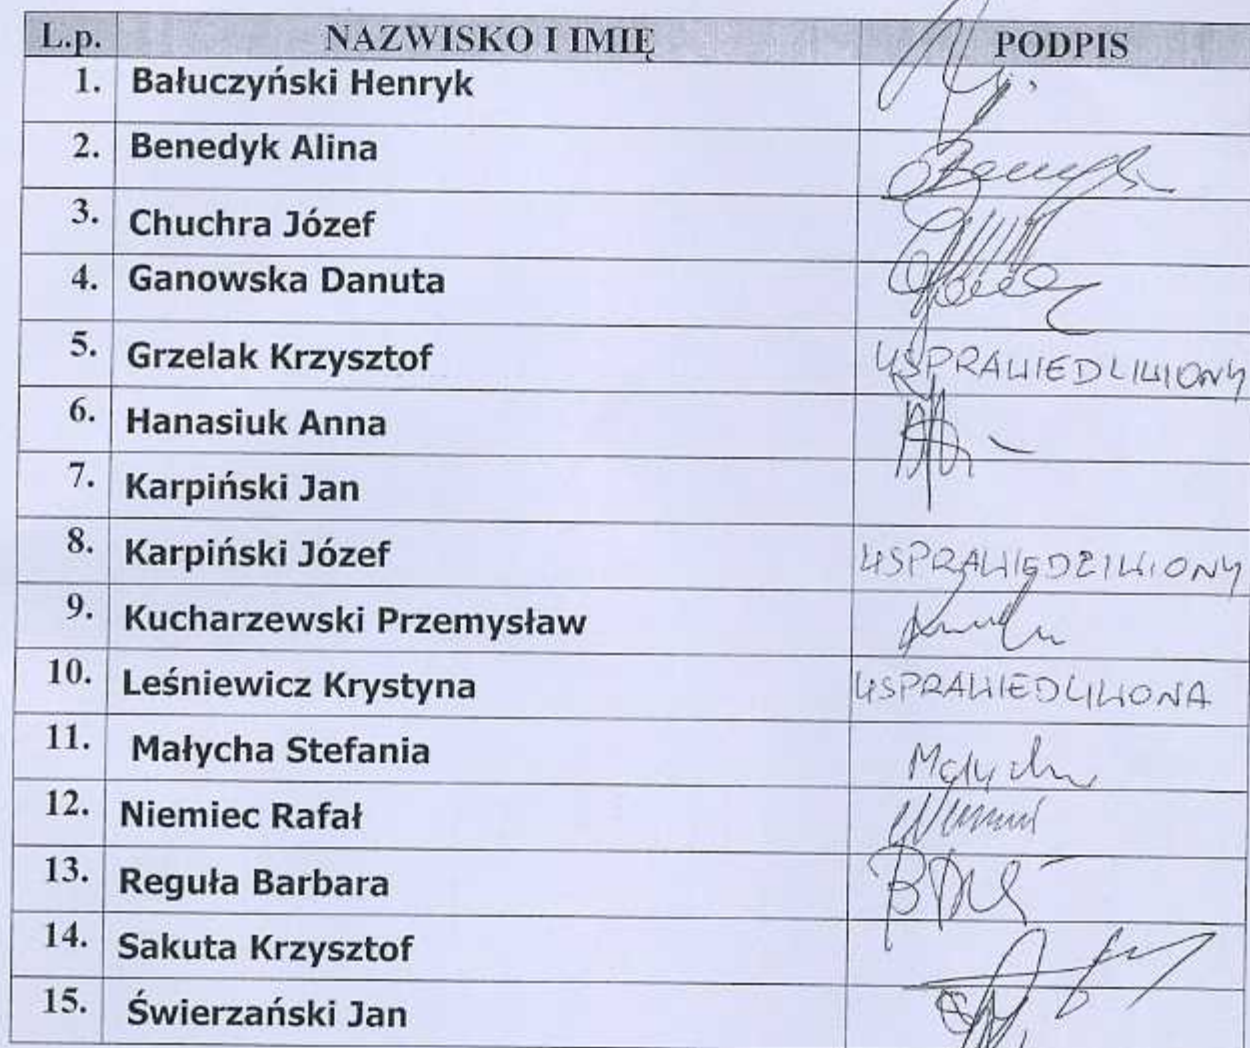 L.p. NAZWISKO I IMIĘ PODPIS
1. Bałuczyński Henryk
2. Benedyk Alina
3. Chuchra Józef
4. Ganowska Danuta
5. Grzelak Krzysztof USPRAWIEDLIWIONY
6. Hanasiuk Anna
7. Karpiński Jan
8. Karpiński Józef USPRAWIEDZIWIONY
9. Kucharzewski Przemysław
10. Leśniewicz Krystyna USPRAWIEDLIWIONA
11. Małycha Stefania Małycha
12. Niemiec Rafał
13. Reguła Barbara
14. Sakuta Krzysztof
15. Świerzański Jan